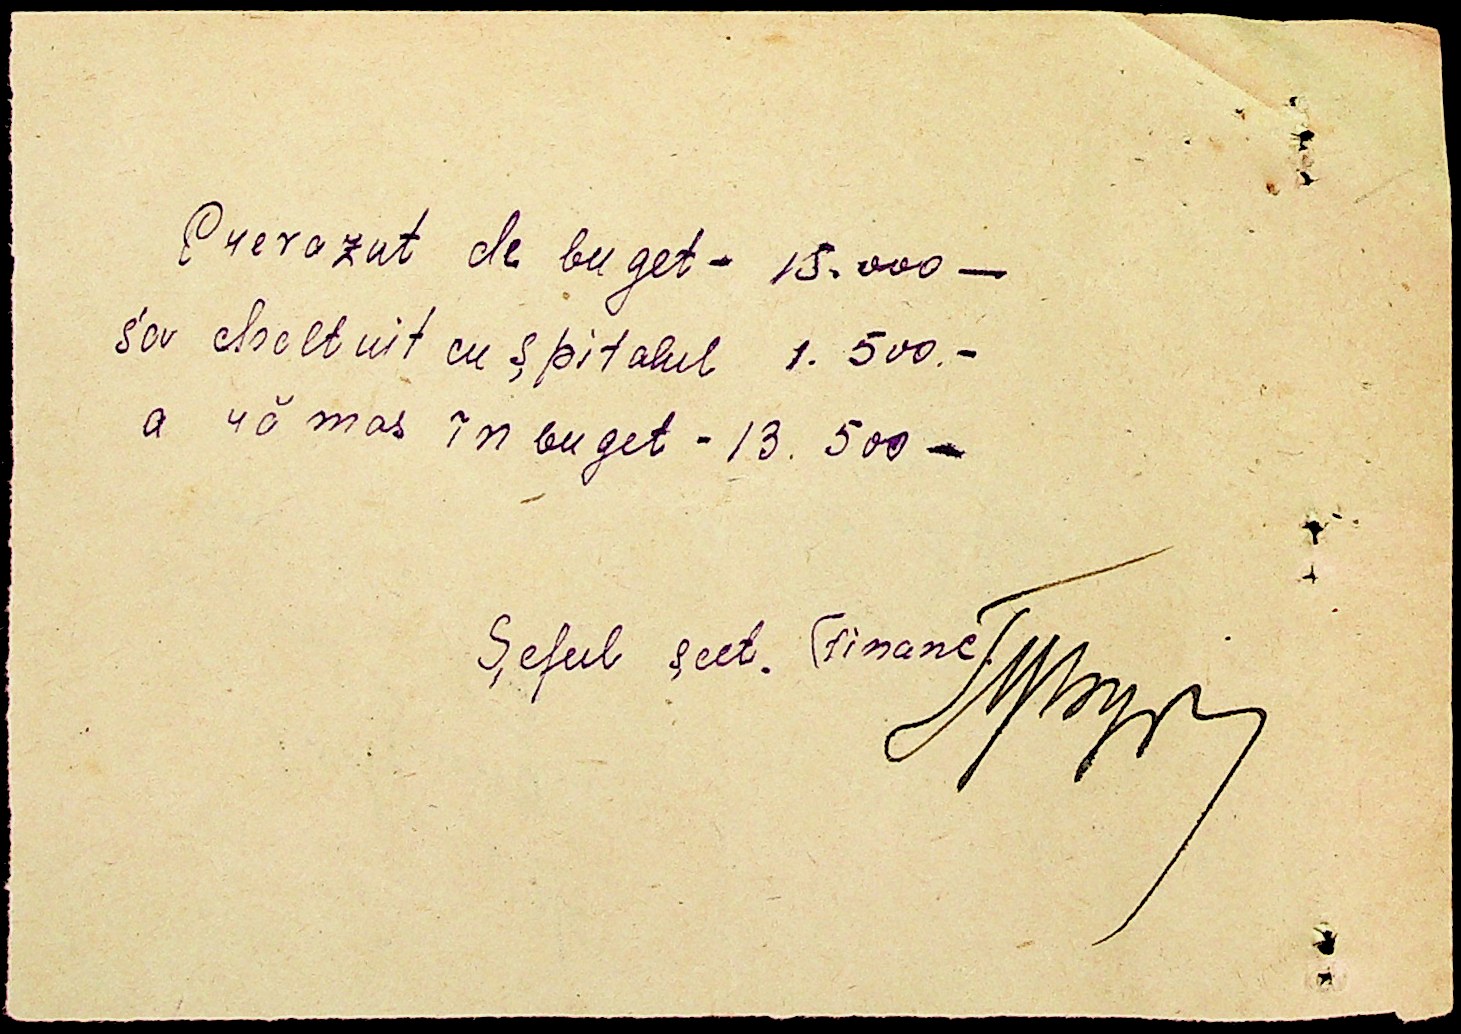 Prevazut de buget - 15.000 —
s'a cheltuit cu spitalul 1.500.-
a rămas în buget - 13.500 —
Șeful șect. Financ.